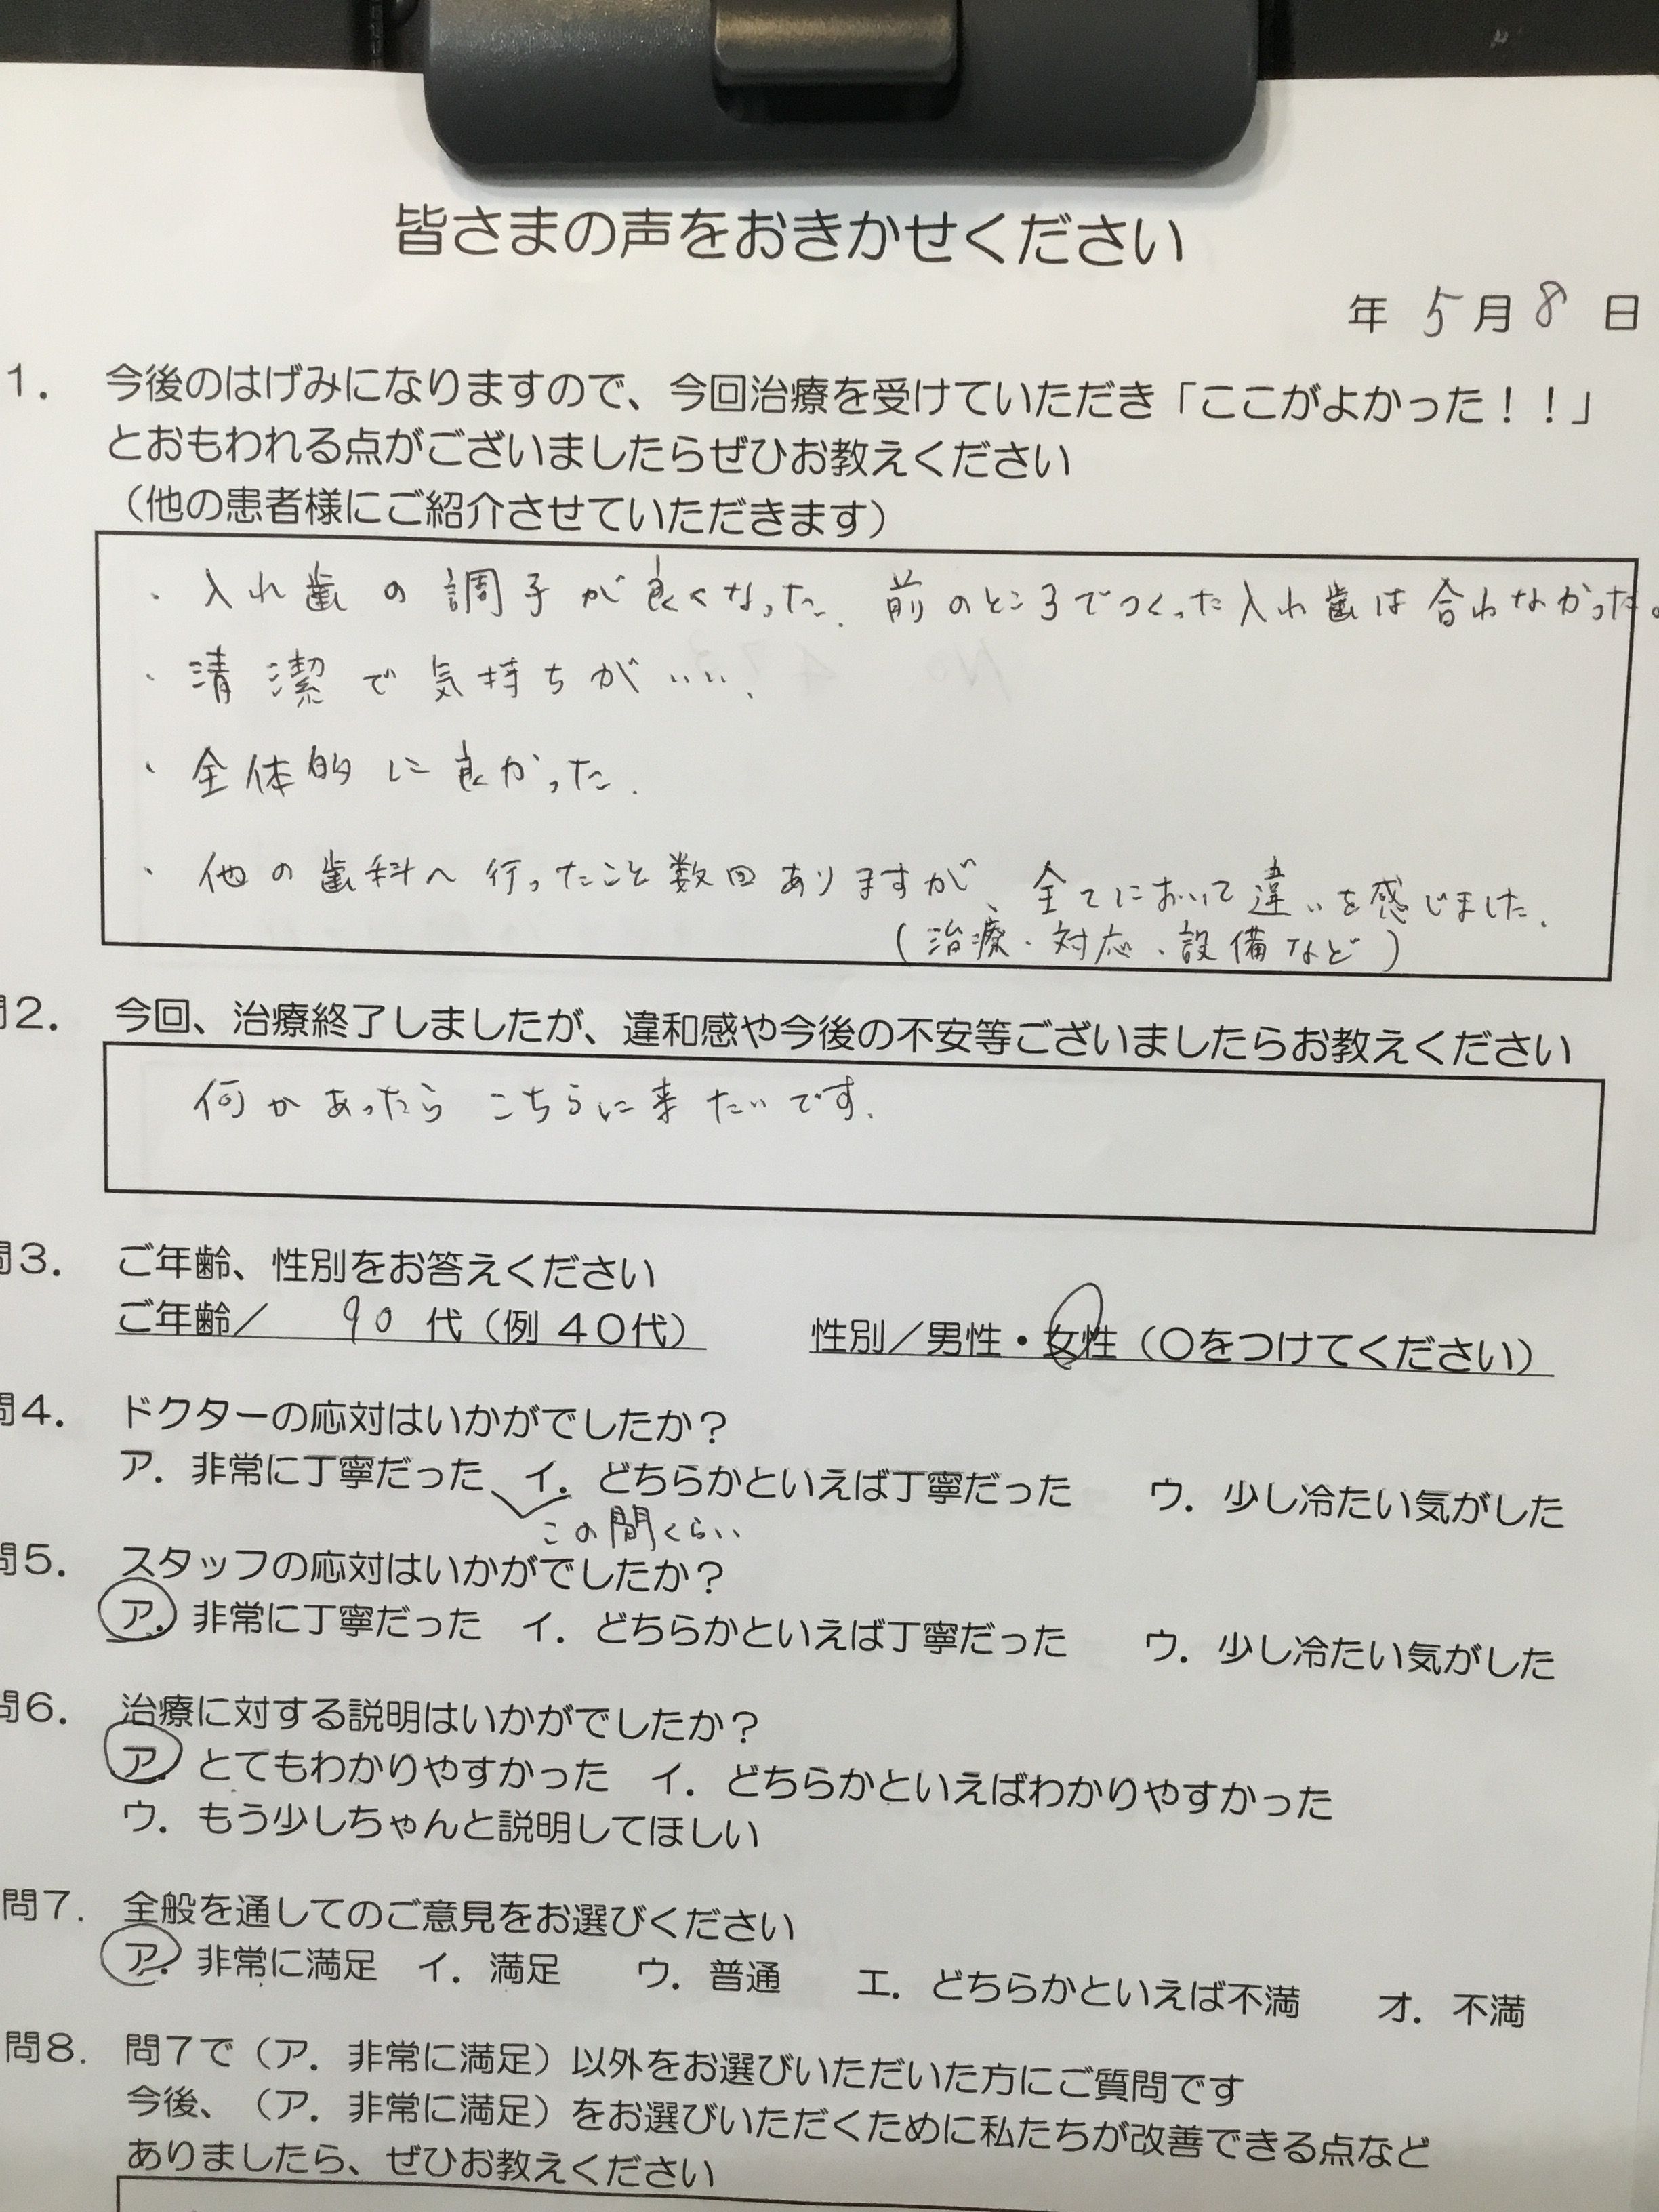 皆さまの声をおきかせください
年 5月 8 日
1. 今後のはげみになりますので、今回治療を受けていただき「ここがよかった！！」
とおもわれる点がございましたらぜひお教えください
（他の患者様にご紹介させていただきます）
・入れ歯の調子が良くなった. 前のところでつくった入れ歯は合わなかった。
・清潔で気持ちがいい.
・全体的に良かった.
・他の歯科へ行ったこと数回ありますが、全てにおいて違いを感じました.
(治療・対応・設備など)
問2. 今回、治療終了しましたが、違和感や今後の不安等ございましたらお教えください
何かあったらこちらに来たいです.
問3. ご年齢、性別をお答えください
ご年齢／ 90 代（例 40代） 性別／男性・女性（○をつけてください）
問4. ドクターの応対はいかがでしたか？
ア. 非常に丁寧だった イ. どちらかといえば丁寧だった ウ. 少し冷たい気がした
この間くらい
問5. スタッフの応対はいかがでしたか？
ア. 非常に丁寧だった イ. どちらかといえば丁寧だった ウ. 少し冷たい気がした
問6. 治療に対する説明はいかがでしたか？
ア. とてもわかりやすかった イ. どちらかといえばわかりやすかった
ウ. もう少しちゃんと説明してほしい
問7. 全般を通してのご意見をお選びください
ア. 非常に満足 イ. 満足 ウ. 普通 エ. どちらかといえば不満 オ. 不満
問8. 問7で（ア. 非常に満足）以外をお選びいただいた方にご質問です
今後、（ア. 非常に満足）をお選びいただくために私たちが改善できる点など
ありましたら、ぜひお教えください